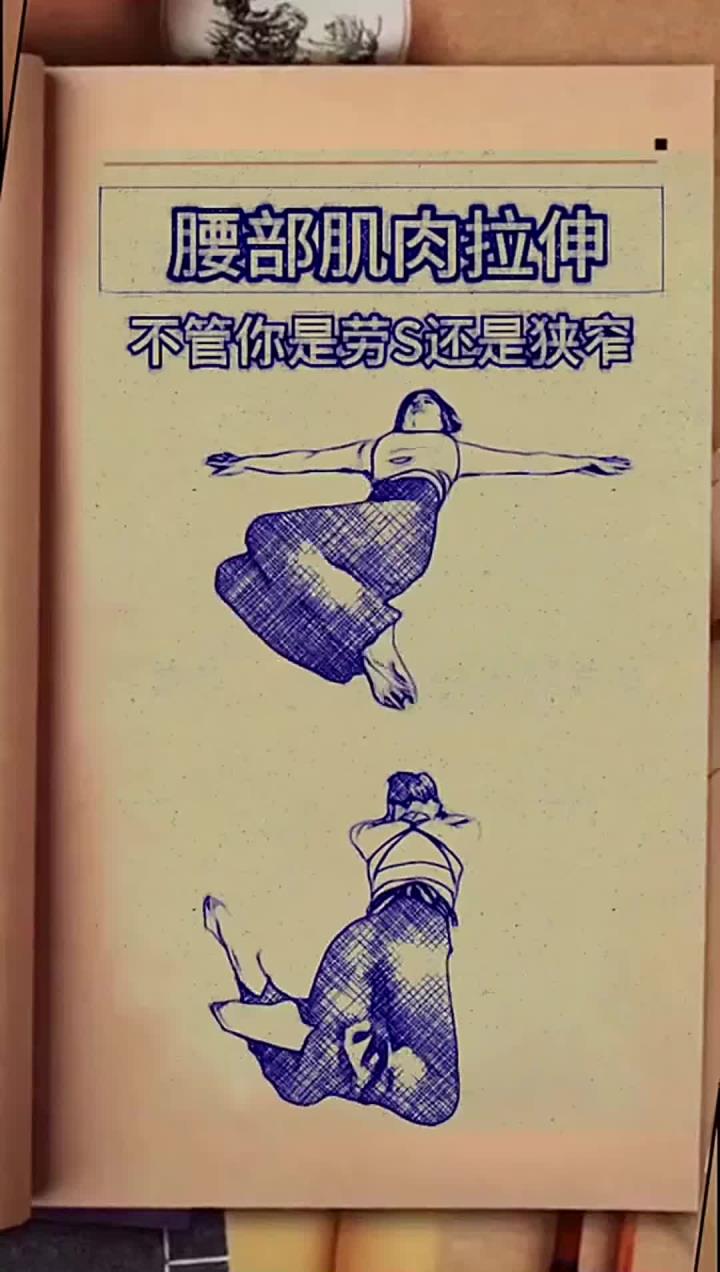 腰部肌肉拉伸
不管你是劳S还是狭窄